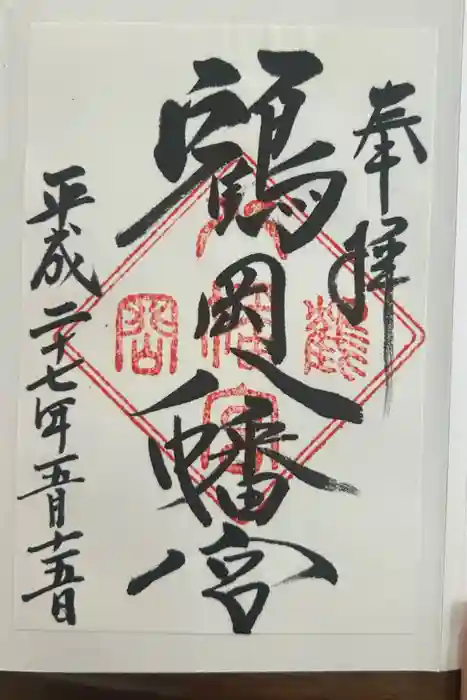 奉拝
鶴岡八幡宮
平成二十七年五月十五日